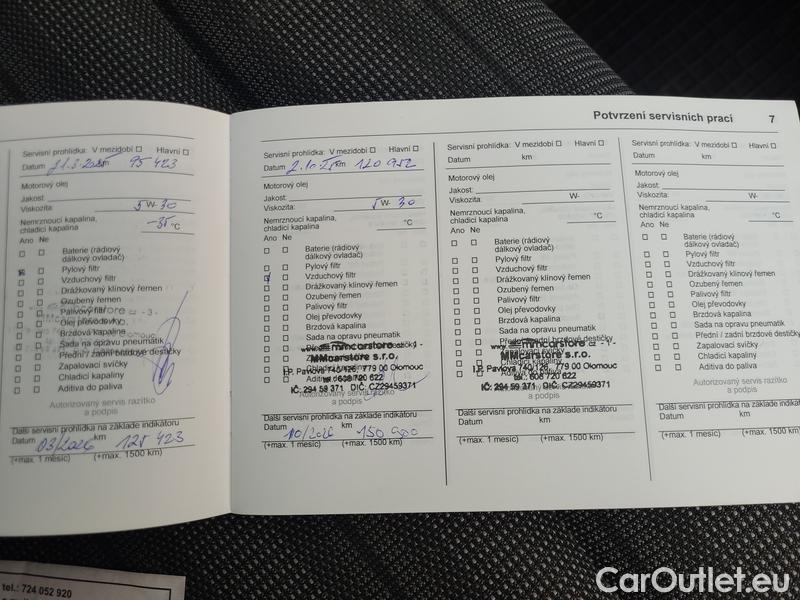 Potvrzení servisních prací 7
Servisní prohlídka: V mezidobí Hlavní
Datum 21.3.2025 km 95 423
Motorový olej
Jakost:
Viskozita: 5 W- 30
Nemrznoucí kapalina,
chladicí kapalina -35 °C
Ano Ne
Baterie (rádiový
dálkový ovladač)
Pylový filtr
Vzduchový filtr
Drážkovaný klínový řemen
Ozubený řemen
Palivový filtr
Olej převodovky
Brzdová kapalina
Sada na opravu pneumatik
Přední / zadní brzdové destičky
Zapalovací svíčky
Chladicí kapaliny
Aditiva do paliva
Autorizovaný servis razítko
a podpis
Další servisní prohlídka na základě indikátoru
Datum km
03/2026 125 423
(+max. 1 měsíc) (+max. 1500 km)
Servisní prohlídka: V mezidobí Hlavní
Datum 2.10.25 km 120 952
Motorový olej
Jakost:
Viskozita: 5 W- 30
Nemrznoucí kapalina,
chladicí kapalina °C
Ano Ne
Baterie (rádiový
dálkový ovladač)
Pylový filtr
Vzduchový filtr
Drážkovaný klínový řemen
Ozubený řemen
Palivový filtr
Olej převodovky
Brzdová kapalina
Sada na opravu pneumatik
mmcarstore
MMcarstore s.r.o.
I.P. Pavlova 740/126, 779 00 Olomouc
tel. 608 720 622
IČ: 294 59 371 DIČ: CZ29459371
Autorizovaný servis razítko
a podpis
Další servisní prohlídka na základě indikátoru
Datum km
10/2026
(+max. 1 měsíc) (+max. 1500 km)
Servisní prohlídka: V mezidobí Hlavní
Datum km
Motorový olej
Jakost:
Viskozita: W-
Nemrznoucí kapalina,
chladicí kapalina °C
Ano Ne
Baterie (rádiový
dálkový ovladač)
Pylový filtr
Vzduchový filtr
Drážkovaný klínový řemen
Ozubený řemen
Palivový filtr
Olej převodovky
Brzdová kapalina
Sada na opravu pneumatik
mmcarstore cz - 1 -
MMcarstore s.r.o.
I.P. Pavlova 740/126, 779 00 Olomouc
tel. 608 720 622
IČ: 294 59 371 DIČ: CZ29459371
a podpis
Další servisní prohlídka na základě indikátoru
Datum km
(+max. 1 měsíc) (+max. 1500 km)
Servisní prohlídka: V mezidobí Hlavní
Datum km
Motorový olej
Jakost:
Viskozita: W-
Nemrznoucí kapalina,
chladicí kapalina °C
Ano Ne
Baterie (rádiový
dálkový ovladač)
Pylový filtr
Vzduchový filtr
Drážkovaný klínový řemen
Ozubený řemen
Palivový filtr
Olej převodovky
Brzdová kapalina
Sada na opravu pneumatik
Přední / zadní brzdové destičky
Zapalovací svíčky
Chladicí kapaliny
Aditiva do paliva
Autorizovaný servis razítko
a podpis
Další servisní prohlídka na základě indikátoru
Datum km
(+max. 1 měsíc) (+max. 1500 km)
tel.: 724 052 920
CarOutlet.eu